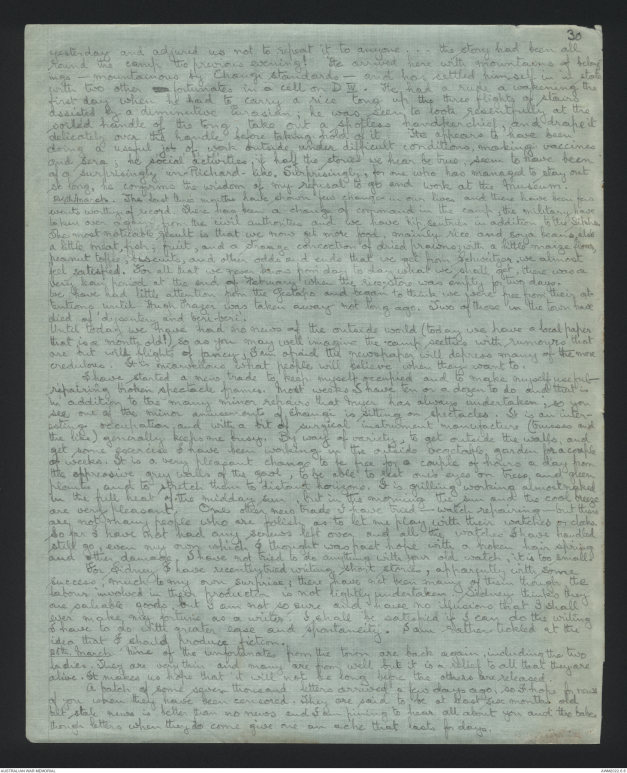 30
yesterday and adjured us not to repeat it to anyone . . . the story had been all
round the camp the previous evening! He arrived here with mountains of belong
ings — mountainous by Changi standards — and has settled himself in in state
with two other fortunates in a cell on D IV. He had a rude awakening the
first day when he had to carry a rice tong up the three flights of stairs
assisted by a diminutive eurasian; he was seen to look resentfully at the
soiled handle of the tong, take out a spotless handkerchief, and drape it
delicately over the handle before taking hold of it. He appears to have been
doing a useful job of work outside under difficult conditions, making vaccines
and sera; his social activities, if half the stories we hear be true, seem to have been
of a surprisingly un-Richard-like. Surprisingly, for one who has managed to stay out
so long, he confirms the wisdom of my refusal to go and work at the museum.
March. The last two months have shown few changes in our lives and there have been few
events worthy of record. There has been a change of command in the camp; the military have
taken over again from the civil authorities and we have sentries in addition to the Sikhs.
The most noticeable result is that we now get more food, mainly rice and soya beans, also
a little meat, fish, fruit, and a strange concoction of dried prawns; with a little maize flour,
peanut toffee, biscuits, and other odds and ends that we get from Schweitzer, we almost
feel satisfied. For all that we never know from day to day what we shall get; there was a
very lean period at the end of February when the rice store was empty for two days.
We have had little attention from the Gestapo and began to think we were free from their at-
tentions until Hugh Fraser was taken away not long ago. Two of those in the town have
died of dysentery and beri-beri.
Until today we have had no news of the outside world (today we have a local paper
that is a month old!) so as you may well imagine the camp seethes with rumours that
are but wild flights of fancy; I am afraid the newspaper will depress many of the more
credulous. It is marvellous what people will believe when they want to.
I have started a new trade to keep myself occupied and to make myself useful —
repairing broken spectacle frames. Most weeks I have ten or a dozen to do and that is
in addition to the many minor repairs that Myer has always undertaken; so you
see one of the minor amusements of Changi is sitting on spectacles. It is an inter-
esting occupation, and with a bit of surgical instrument manufacture (trusses and
the like) generally keeps me busy. By way of variety, to get outside the walls, and
get some exercise I have been working in the outside vegetable garden for a couple
of weeks. It is a very pleasant change to be free for a couple of hours a day from
the oppressive grey walls of the gaol, to be able to rest one's eyes on trees and green
plants, and to stretch them to distant horizons. It is grilling working almost naked
in the full heat of the midday sun, but in the morning the sun and the cool breeze
are very pleasant. One other new trade I have tried — watch repairing — but there
are not many people who are foolish as to let me play with their watches or clocks.
So far I have not had any screws left over and all the watches I have handled
still go, even my own which I thought was past hope with a broken hair spring
and other damage. I have not tried to do anything with your old watch; it is too small.
For Sidney I have recently tried writing short stories, apparently with some
success, much to my own surprise; there have not been many of them though, the
labour involved in their production is not lightly undertaken. Sidney thinks they
are saleable goods, but I am not so sure and have no illusions that I shall
ever make my fortune as a writer. I shall be satisfied if I can do the writing
I have to do with greater ease and spontaneity. I am rather tickled at the
idea that I should produce fiction.
March. Nine of the unfortunates from the town are back again, including the two
ladies. They are very thin and many are far from well but it is a relief to all that they are
alive. It makes us hope that it will not be long before the others are released.
A batch of some seven thousand letters arrived a few days ago, so I hope for news
of you when they have been censored. They are said to be at least five months old
but stale news is better than no news and I am pining to hear all about you and the babe,
though letters when they do come give me an ache that lasts for days.
AUSTRALIAN WAR MEMORIAL